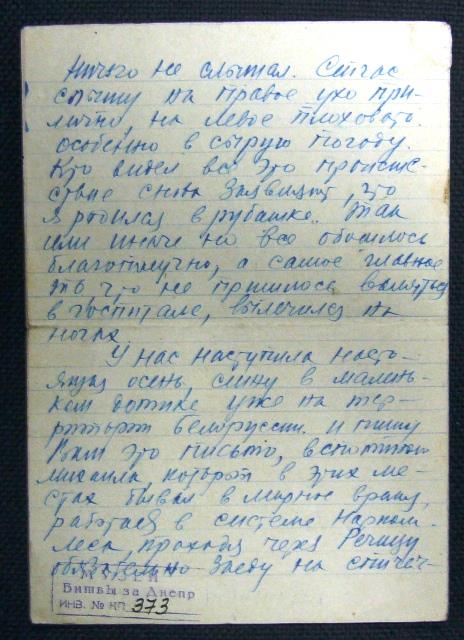 ничего не слышал. Сейчас
слышу на правое ухо при-
лично, на левое плоховато.
особенно в сырую погоду.
Кто видел все это происше-
ствие снова заявили, что
я родился в рубашке. Так
или иначе но все обошлось
благополучно, а самое главное
то, что не пришлось валяться
в госпитале, вылечился на
ногах.
У нас наступила насто-
ящая осень, сижу в малень-
ком домике уже на тер-
ритории Белоруссии. и пишу
Вам это письмо, вспоминаю
Михаила, который в этих ме-
стах бывал в мирное время,
работая в системе Нарком-
леса, проходя через Речицу
обязательно заеду на спичеч-
Битвы за Днепр
ИНВ. № КП 373